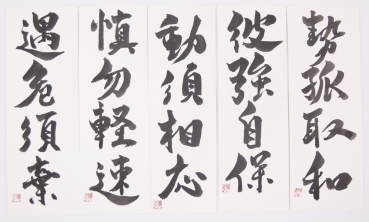 勢孤取和
彼強自保
動須相応
慎勿軽速
遇危須棄